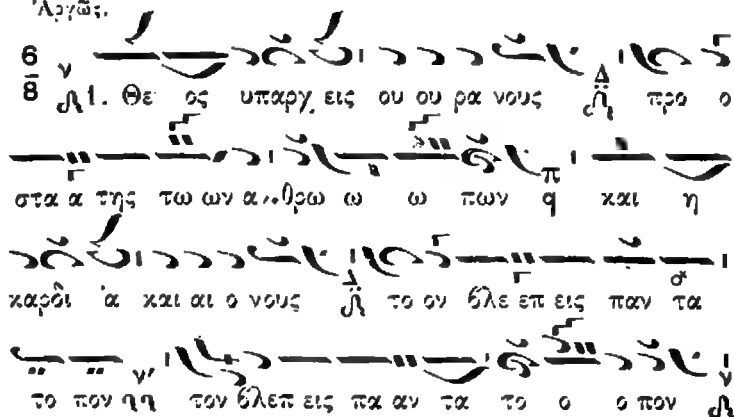 Ἀργῶς.
6
8
1. Θε ος υπαρχ εις ου ου ρα νους Δ προ ο
στα α της τω ων α νθρω ω ω πων π q και η
καρδι α και αι ο νους Δ το ον βλε επ εις παν τα
το πον ν' τον βλεπ εις πα αν τα το ο ο πον ν